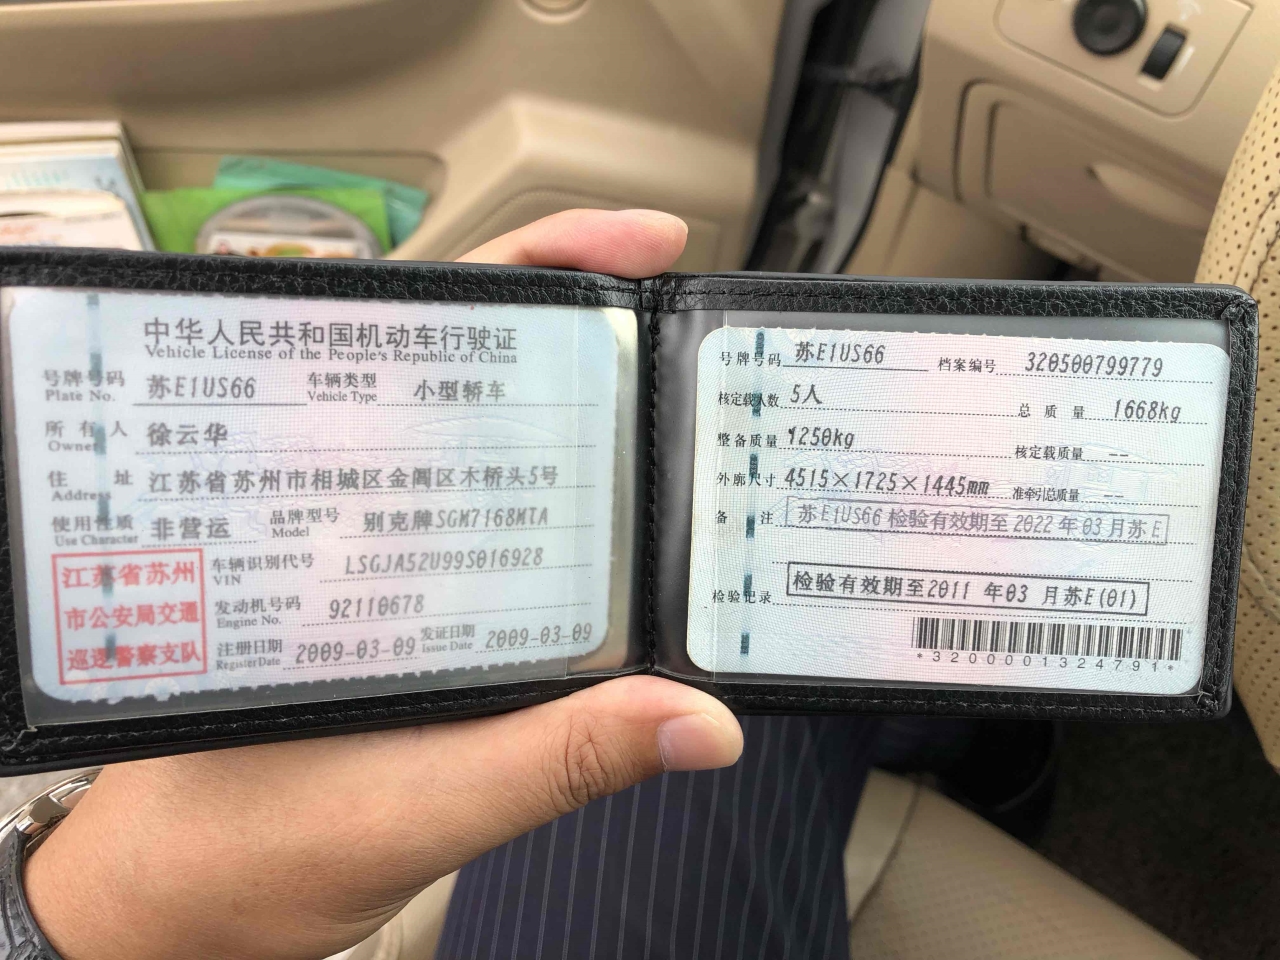 中华人民共和国机动车行驶证
Vehicle License of the People's Republic of China
号牌号码 苏E1US66 车辆类型 小型轿车
Plate No. Vehicle Type
所有人 徐云华
Owner
住址 江苏省苏州市相城区金阊区木桥头5号
Address
使用性质 非营运 品牌型号 别克牌SGM7168MTA
Use Character Model
江苏省苏州
市公安局交通
巡逻警察支队
车辆识别代号 LSGJA52U99S016928
VIN
发动机号码 92110678
Engine No.
注册日期 2009-03-09 发证日期 2009-03-09
Register Date Issue Date
号牌号码 苏E1US66 档案编号 320500799779
核定载人数 5人 总质量 1668kg
整备质量 1250kg 核定载质量 --
外廓尺寸 4515×1725×1445mm 准牵引总质量 --
备注 苏E1US66 检验有效期至2022年03月苏E
检验记录 检验有效期至2011年03月苏E(01)
*3200001324791*